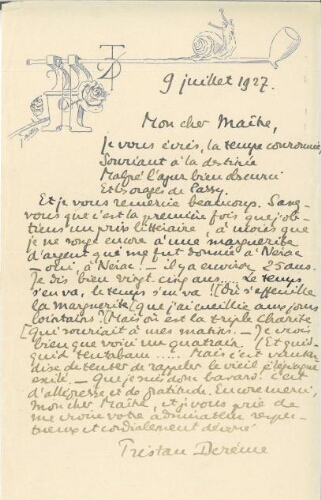 9 juillet 1927.
Mon cher Maître,
je vous écris, la tempe couronnée,
Souriant à la destinée
Malgré l'azur bien obscurci
Et les orages de Passy.
Et je vous remercie beaucoup. Savez-
vous que c'est la première fois que j'ob-
tiens un prix littéraire, à moins que
je ne songe encore à une marguerite
d'argent qui me fut donnée à Nérac
– oui, à Nérac. – il y a environ 25 ans.
Je dis bien vingt-cinq ans. Le temps
s'en va, le temps s'en va ! (Où s'effeuille
la marguerite/ Que j'ai cueillie aux jours
lointains/ Mais où est la triple Charite
/ Qui souriait à mes matins. – Je crois
bien que voici un quatrain ! Et quid-
quid tentabam ..... Mais c'est
de tenter de rappeler le vieil
exilé – Que je suis donc bavard ! c'est
d'allégresse et de gratitude. Encore merci,
mon cher Maître, et je vous prie de
me croire votre admirateur respec-
tueux et cordialement dévoué
Tristan Derème